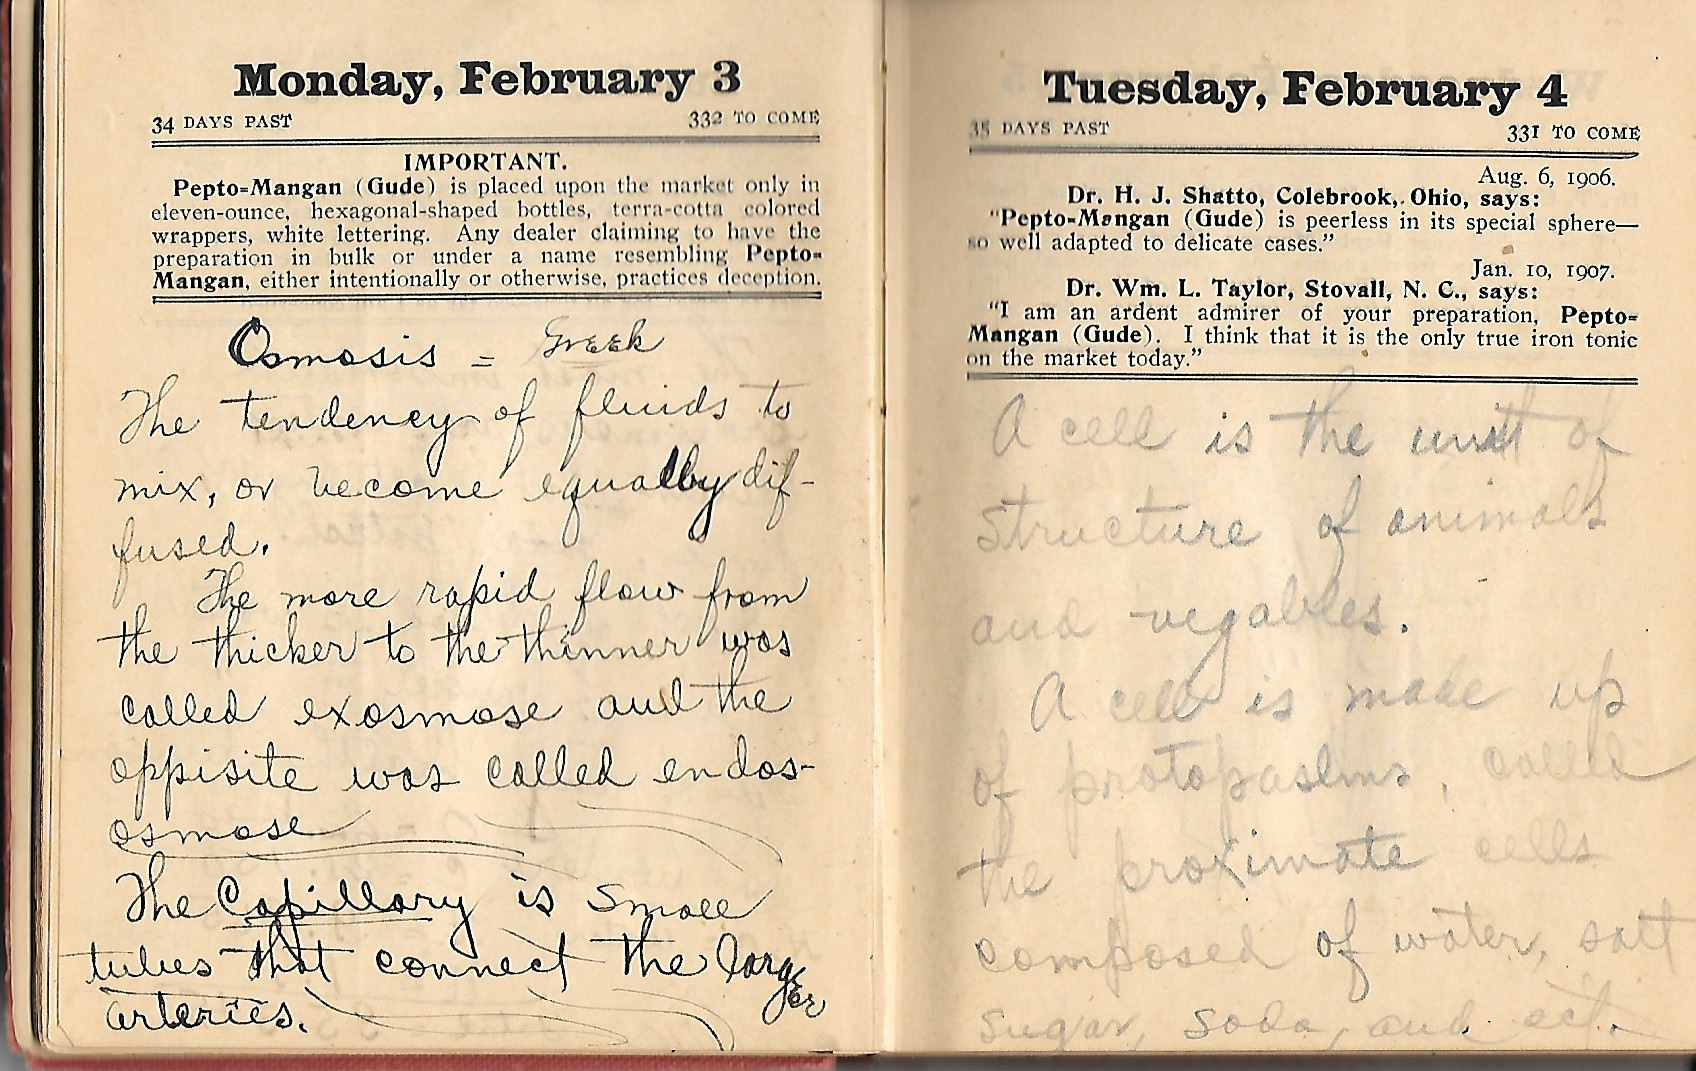 Monday, February 3
34 DAYS PAST 332 TO COME
IMPORTANT.
Pepto-Mangan (Gude) is placed upon the market only in
eleven-ounce, hexagonal-shaped bottles, terra-cotta colored
wrappers, white lettering. Any dealer claiming to have the
preparation in bulk or under a name resembling Pepto-
Mangan, either intentionally or otherwise, practices deception.
Osmosis = Greek
The tendency of fluids to
mix, or become equally dif-
fused.
The more rapid flow from
the thicker to the thinner was
called exosmose and the
oppisite was called endos-
osmose
The Capillary is small
tubes that connect the larg
er
arteries.
Tuesday, February 4
35 DAYS PAST 331 TO COME
Aug. 6, 1906.
Dr. H. J. Shatto, Colebrook, Ohio, says:
"Pepto-Mangan (Gude) is peerless in its special sphere—
so well adapted to delicate cases."
Jan. 10, 1907.
Dr. Wm. L. Taylor, Stovall, N. C., says:
"I am an ardent admirer of your preparation, Pepto-
Mangan (Gude). I think that it is the only true iron tonic
on the market today."
A cell is the unit of
structure of animals
and vegables.
A cell is made up
of protopaslms, called
the proximate cells
composed of water, salt
sugar, soda, and ect.